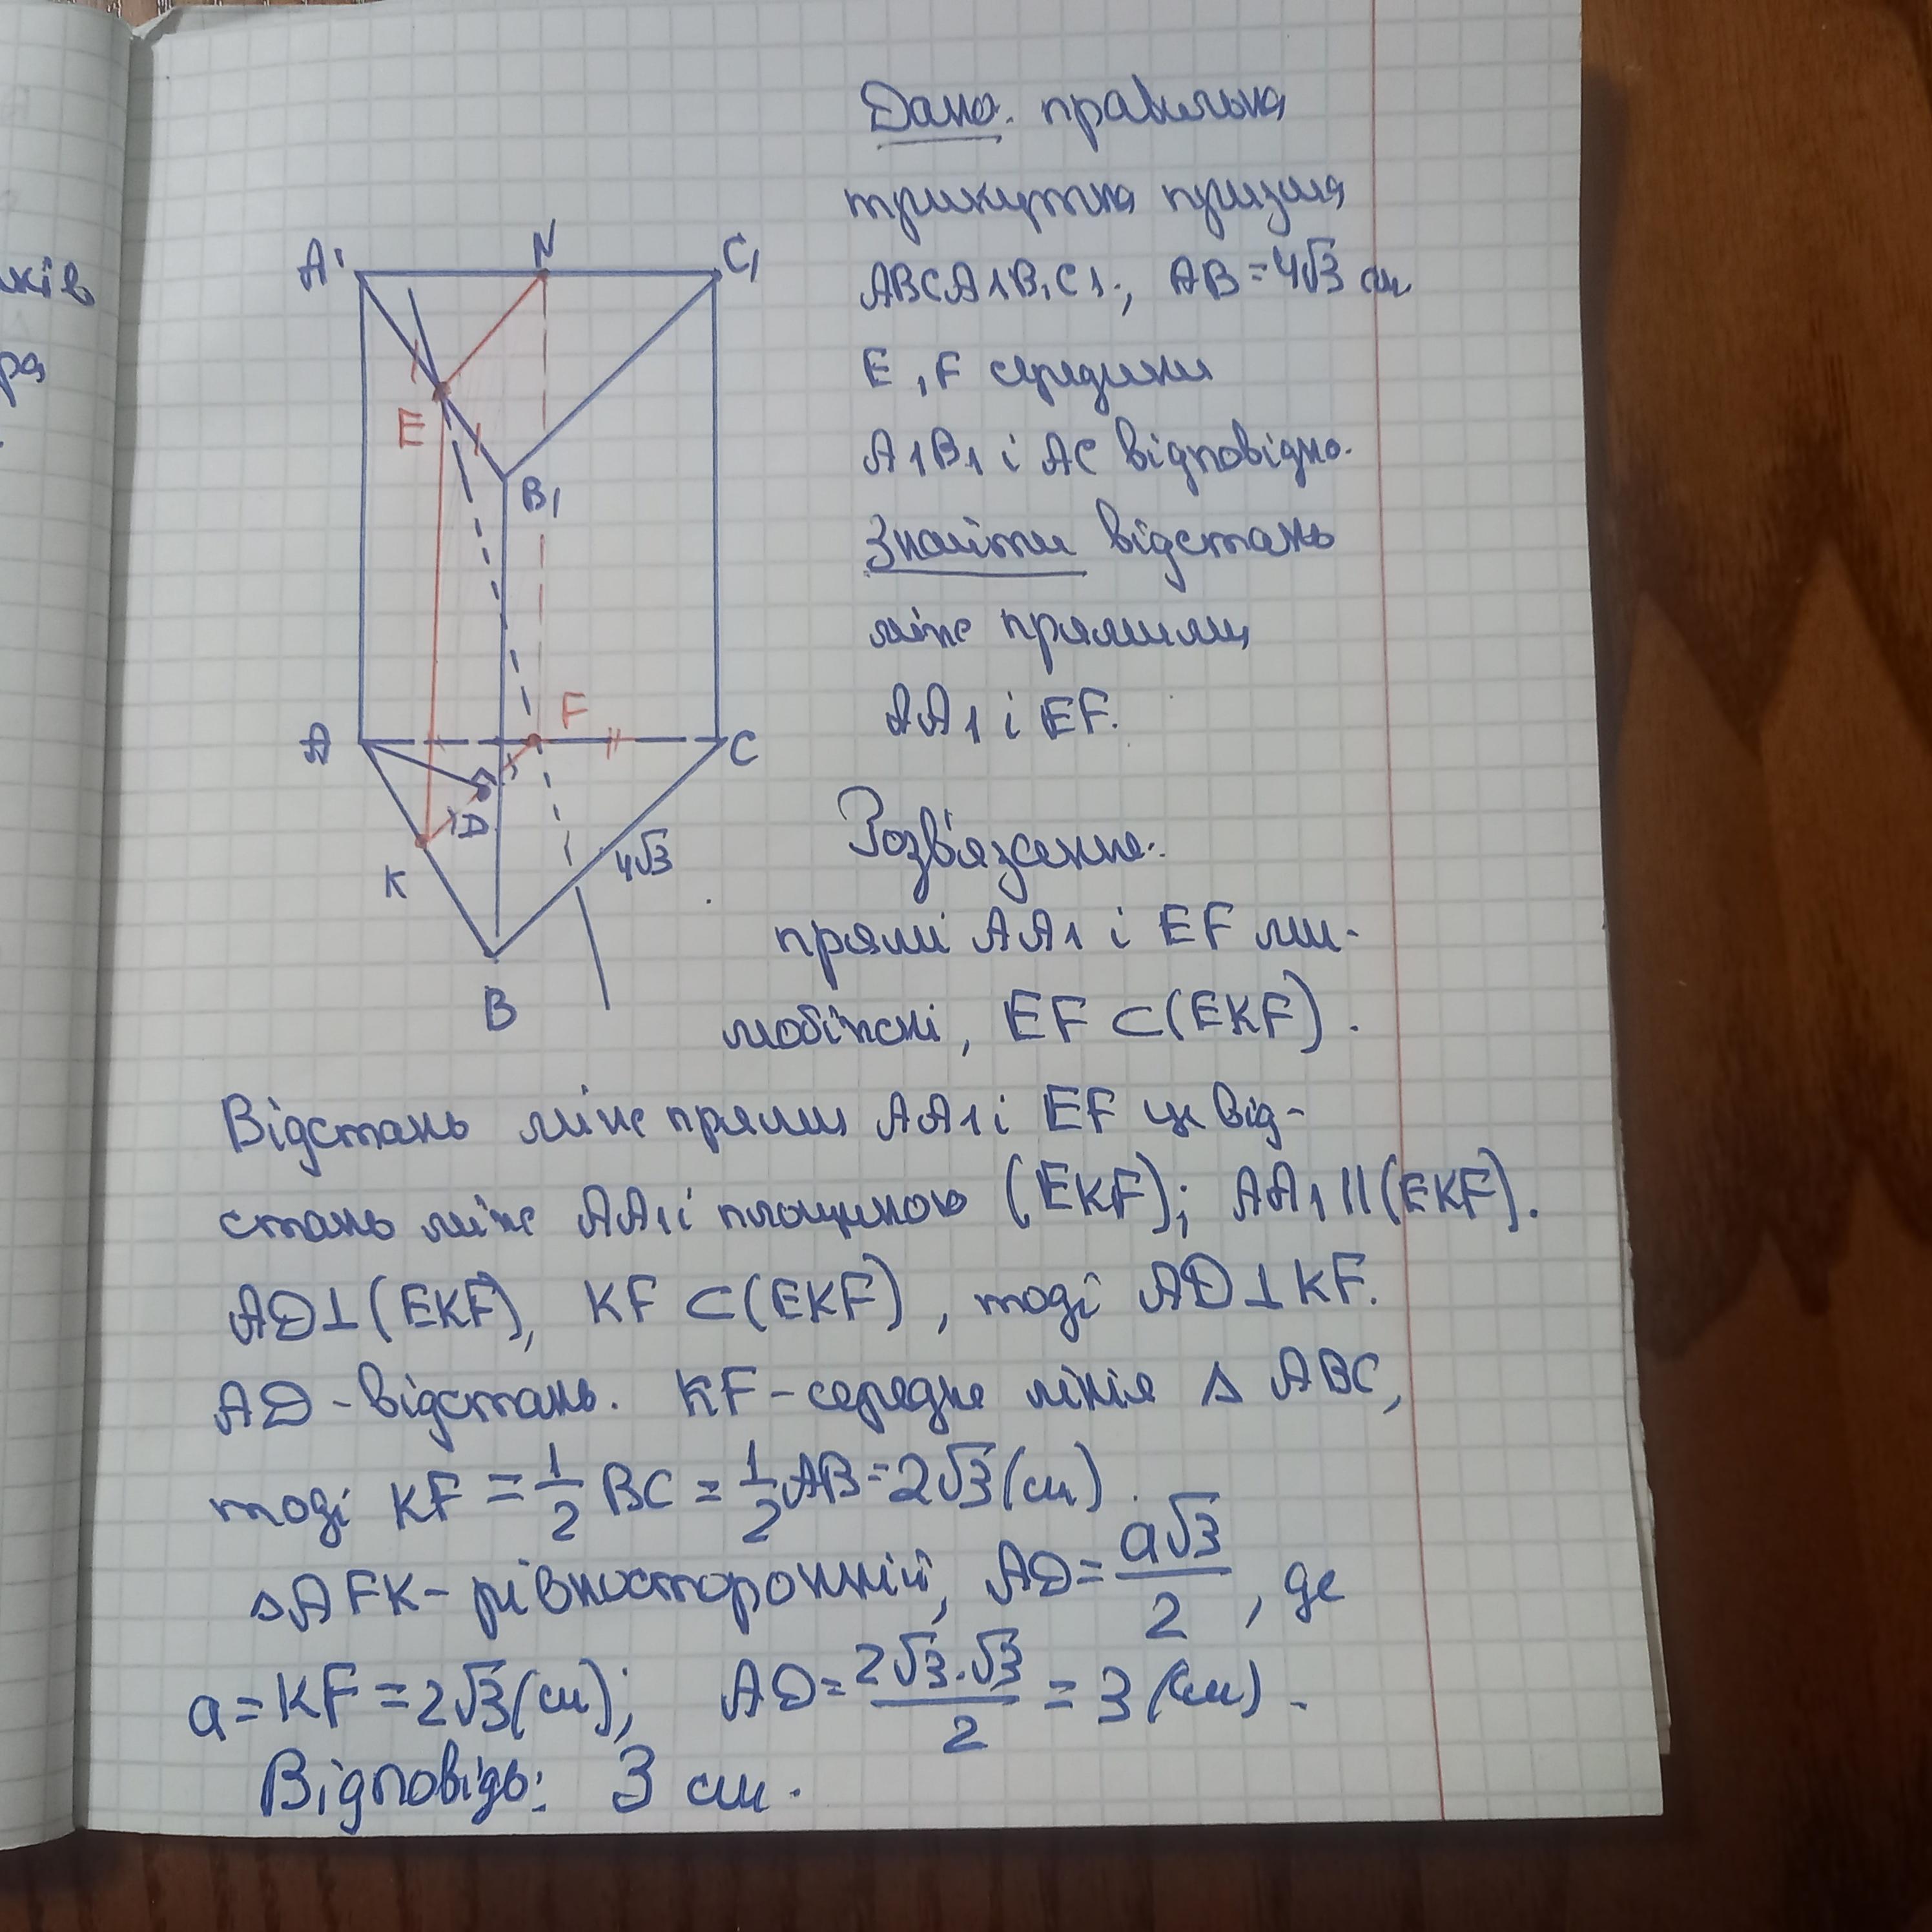 ків
ра
Дано. правильна
трикутна призма
ABCA1B1C1; AB=4√3 см
E, F середини
A1B1 і AC відповідно.
Знайти відстань
між прямими
AA1 і EF.
A1
N
C1
E
B1
F
A
C
D
K
4√3
B
Розв'язання.
прямі AA1 і EF ми-
мобіжні, EF ⊂ (EKF).
Відстань між прями AA1 і EF це від-
стань між AA1 і площиною (EKF); AA1 || (EKF).
AD⊥(EKF), KF ⊂ (EKF), тоді AD⊥KF.
AD - відстань. KF - середня лінія △ ABC,
тоді KF = 1/2 BC = 1/2 AB = 2√3 (см).
△AFK - рівносторонній, AD = a√3/2, де
a = KF = 2√3 (см); AD = 2√3·√3/2 = 3 (см).
Відповідь: 3 см.